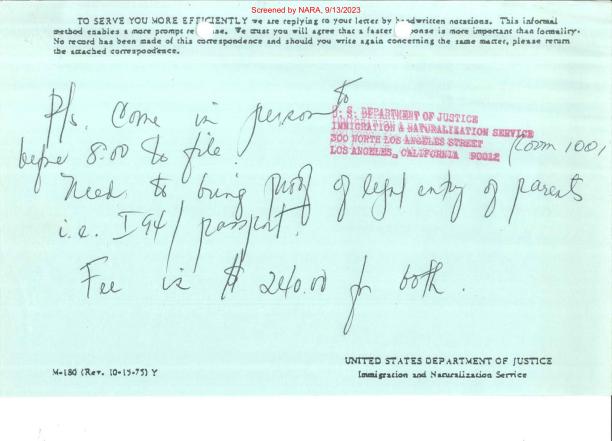 Screened by NARA, 9/13/2023
TO SERVE YOU MORE EFFICIENTLY we are replying to your letter by handwritten notations. This informal
method enables a more prompt response. We trust you will agree that a faster response is more important than formality.
No record has been made of this correspondence and should you write again concerning the same matter, please return
the attached correspondence.
Pls. Come in person to
U. S. DEPARTMENT OF JUSTICE
IMMIGRATION & NATURALIZATION SERVICE
300 NORTH LOS ANGELES STREET
LOS ANGELES, CALIFORNIA 90012
Room 1001
before 8:00 to file.
Need to bring proof of legal entry of parents
i.e. I94/passport.
Fee is $ 240.00 for both.
UNITED STATES DEPARTMENT OF JUSTICE
M-180 (Rev. 10-15-75) Y
Immigration and Naturalization Service